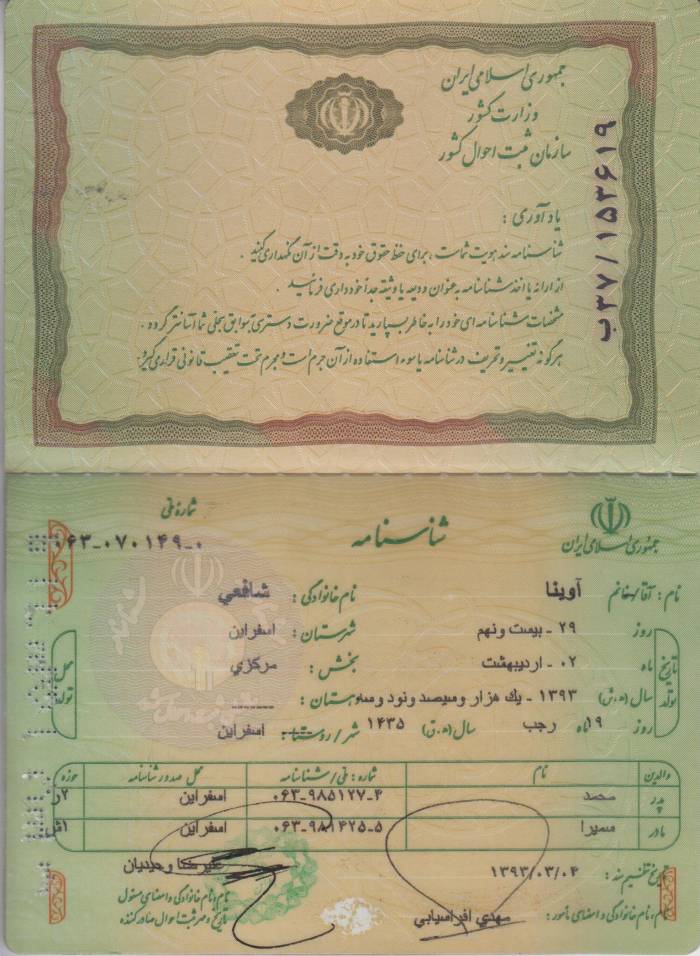 جمهوری اسلامی ایران
وزارت کشور
سازمان ثبت احوال کشور
ب۳۷/۱۵۳۶۱۹
یادآوری :
شناسنامه سند هویت شماست ، برای حفظ حقوق خود به دقت از آن نگهداری کنید .
از ارائه یا اخذ شناسنامه به عنوان ودیعه یا وثیقه جداً خودداری فرمائید .
مشخصات شناسنامه ای خود را به خاطر بسپارید تا در موقع ضرورت دسترسی به سوابق سجلی شما آسانتر گردد .
هرگونه تغییر و تحریف در شناسنامه یا سوء استفاده از آن جرم است و مجرم تحت تعقیب قانونی قرار می گیرد .
جمهوری اسلامی ایران
شناسنامه
شماره ملی
۰۶۳-۰۷۰۱۴۹-۰
نام : آقا/خانم آوینا نام خانوادگی : شافعي
تاریخ تولد
روز ۲۹ - بیست ونهم شهرستان : اسفراین
ماه ۰۲ - اردیبهشت بخش : مرکزي
سال (ه.ش) ۱۳۹۳ - یك هزار وسیصد ونود وسه دهستان :
روز ۱۹ ماه رجب سال (ه.ق) ۱۴۳۵ شهر / روستا : اسفراین
محل تولد
والدین نام شماره : ملی / شناسنامه محل صدور شناسنامه حوزه
پدر ۰۶۳-۹۸۵۱۲۷-۴ اسفراین ۲
مادر ۰۶۳-۹۸۱۴۲۵-۵ اسفراین ۱
تاریخ تنظیم سند : ۱۳۹۳/۰۳/۰۴ علیرضا وحیدیان
نام، نام خانوادگی و امضای مأمور : مهدي افراسیابي
نام، نام خانوادگی و امضای مسئول
تاریخ و مهر ثبت احوال صادرکننده